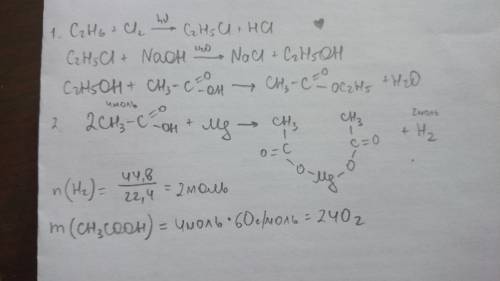 1. C₂H₆ + Cl₂ →(hν) C₂H₅Cl + HCl
C₂H₅Cl + NaOH →(H₂O) NaCl + C₂H₅OH
C₂H₅OH + CH₃-C(=O)-OH → CH₃-C(=O)-OC₂H₅ + H₂O
4моль 2моль
2. 2CH₃-C(=O)-OH + Mg → CH₃-C(=O)-O-Mg-O-C(=O)-CH₃ + H₂
n(H₂) = 44,8/22,4 = 2моль
m(CH₃COOH) = 4моль·60г/моль = 240г